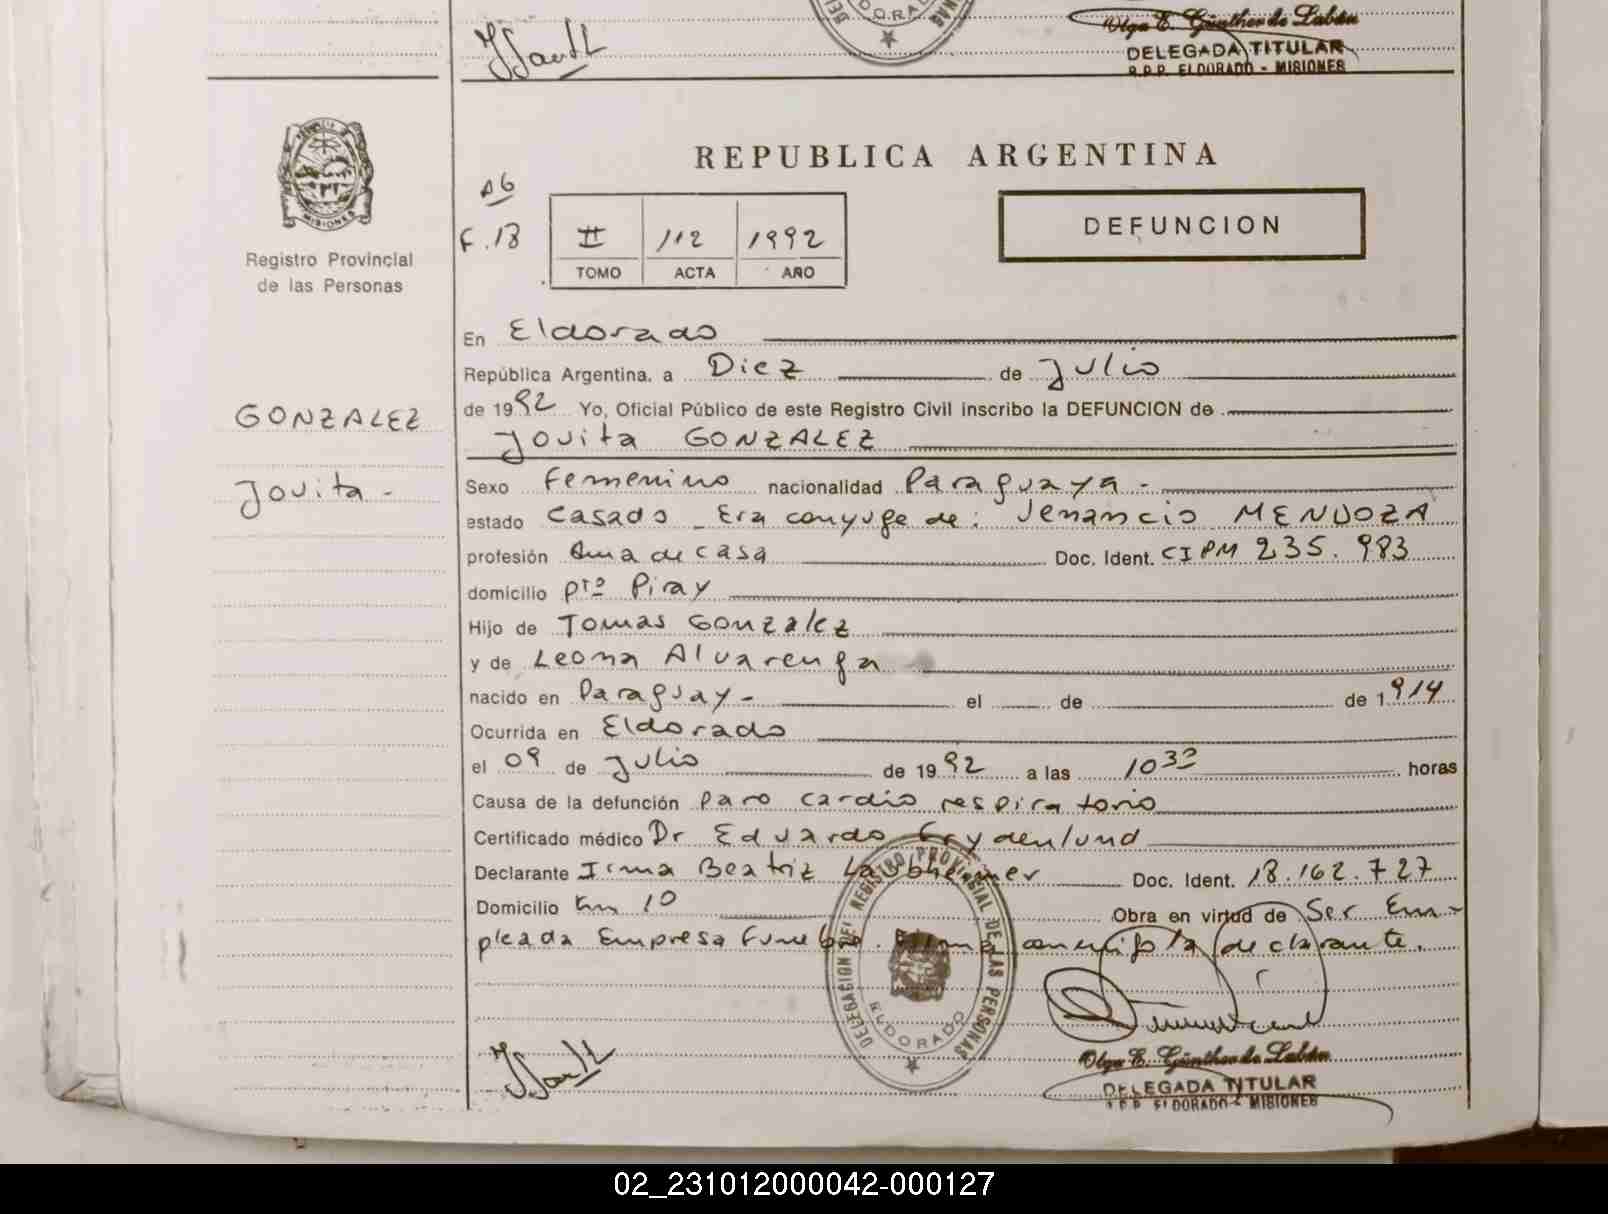 Olga E. Günther de Laban
DELEGADA TITULAR
R.P.P. ELDORADO - MISIONES
REPUBLICA ARGENTINA
DEFUNCION
MISIONES
Registro Provincial
de las Personas
F. 13
II 112 1992
TOMO ACTA AÑO
En Eldorado
República Argentina, a Diez de Julio
de 1992 Yo, Oficial Público de este Registro Civil inscribo la DEFUNCION de
GONZALEZ
Jovita GONZALEZ
Jovita -
Sexo Femenino nacionalidad Paraguaya -
estado Casado - Era conyuge de: Venancio MENDOZA
profesión Ama de casa Doc. Ident. CIPM 235.983
domicilio Pto Piray
Hijo de Tomas Gonzalez
y de Leona Alvarenga
nacido en Paraguay - el de de 1914
Ocurrida en Eldorado
el 09 de Julio de 1992 a las 10 30 horas
Causa de la defunción Paro cardio respiratorio
Certificado médico Dr Eduardo Frydenlund
Declarante Irma Beatriz Laubheimer Doc. Ident. 18.162.727
Domicilio km 10 Obra en virtud de Ser Em-
pleada Empresa Funebre. Firma conmigo la declarante.
DELEGACION DEL REGISTRO PROVINCIAL DE LAS PERSONAS
ELDORADO
Olga E. Günther de Laban
DELEGADA TITULAR
R.P.P. ELDORADO - MISIONES
02_231012000042-000127